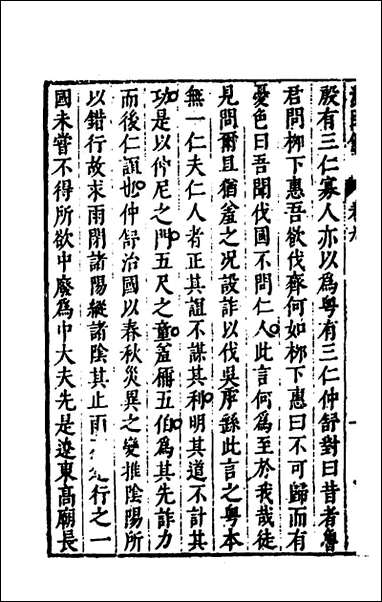 殷有三仁寡人亦以爲粤有三仁仲舒對曰昔者魯
君問柳下惠吾欲伐齊何如柳下惠曰不可歸而有
憂色曰吾聞伐國不問仁人此言何爲至於我哉徒
見問爾且猶羞之况設詐以伐吳虖繇此言之粤本
無一仁夫仁人者正其誼不謀其利明其道不計其
功是以仲尼之門五尺之童羞稱五伯爲其先詐力
而後仁誼也仲舒治國以春秋災異之變推陰陽所
以錯行故求雨閉諸陽縱諸陰其止雨行之一
國未嘗不得所欲中廢爲中大夫先是遼東高廟長